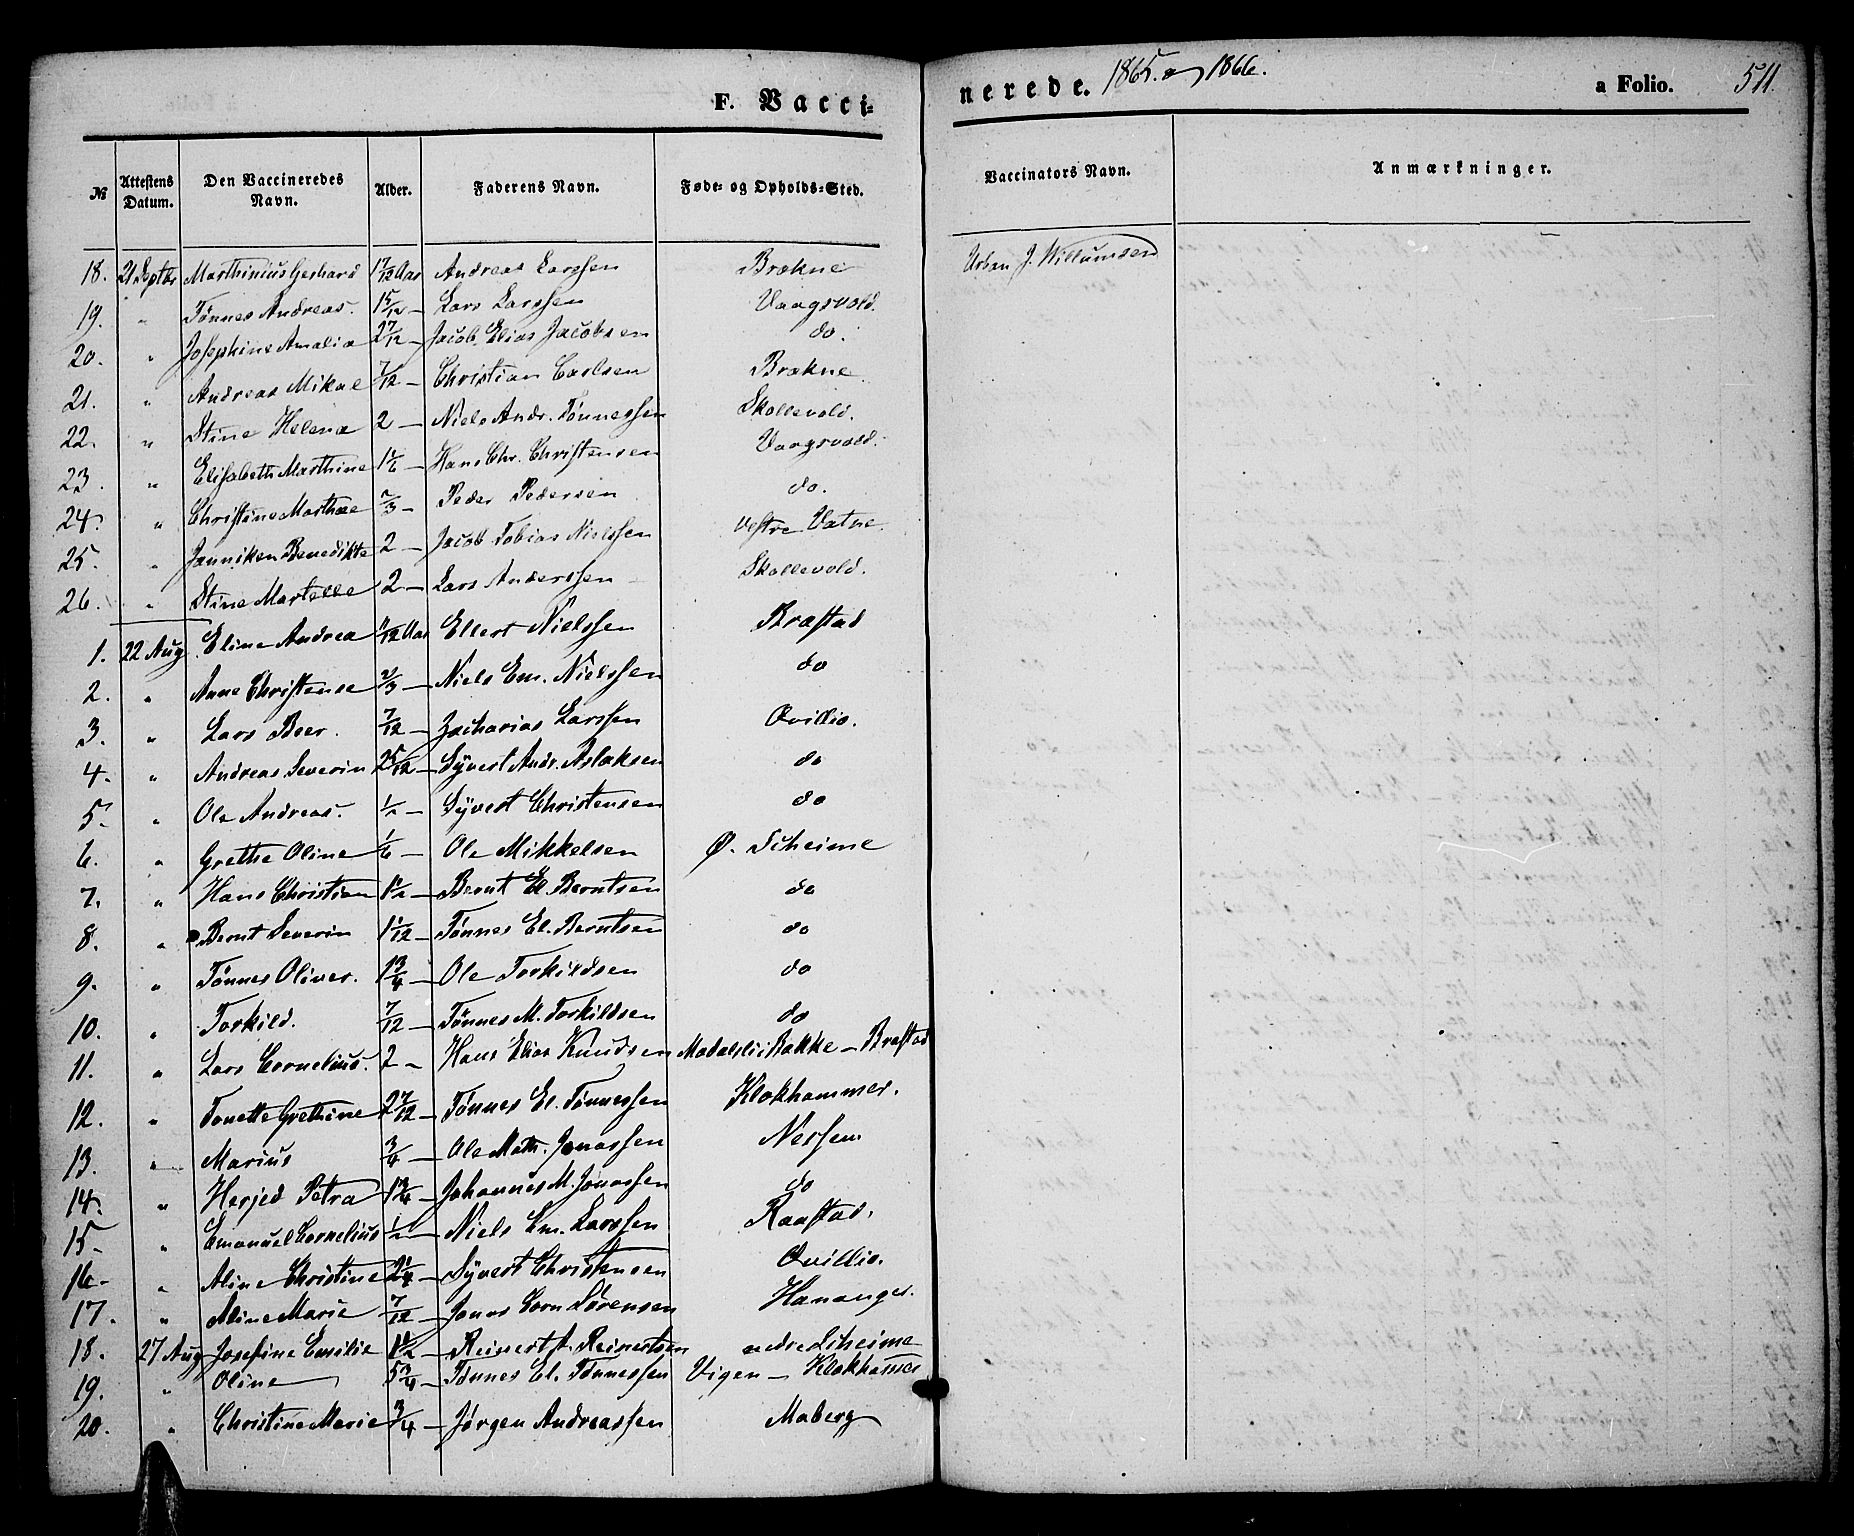 F. Vacci-
nerede. 1865. og 1866. a Folio. 511.
№ Attestens Datum. Den Vaccineredes Navn. Alder. Faderens Navn. Føde- og Opholds-Sted. Vaccinators Navn. Anmærkninger.
18. 21 Septbr Marthinius Gerhard 17/12 Aar Andreas Larssen Brækne Urban J. Willumsen
19. " Tønnes Andreas. 15/12 — Lars Larssen Vaagsvold.
20. " Josephine Amalia 27/12 — Jacob Elias Jacobsen do.
21. " Andreas Mikal 7/12 — Christian Carlsen Brækne
22. " Stine Helena 2 — Niels Andr. Tønnessen Skollevold.
23. " Elisabeth Marthine 1 1/6 — Hans Chr. Christensen Vaagsvold.
24. " Christine Marthae 2/3 — Peder Pedersen do.
25. " Janniken Benedikte 2 — Jacob Tobias Nielssen Vestre Vatne.
26. " Stine Martelle 2 — Lars Anderssen Skollevold.
1. 22 Aug Eline Andrea 11/12 Aar Ellert Nielssen Brastad
2. " Anne Christense 2/3 — Niels Em. Nielssen do
3. " Lars Beer. 7/12 — Zacharias Larssen Qvillio.
4. " Andreas Severin 25/12 — Syvert Andr. Aslaksen do
5. " Ole Andreas. 1/2 — Syvert Christensen do
6. " Grethe Oline 1/6 — Ole Mikkelsen Ø. Skeime
7. " Hans Christian 1 1/2 — Bernt El. Berntsen do
8. " Bernt Severin 1 1/12 — Tønnes El. Berntsen do
9. " Tønnes Oliver. 1 3/4 — Ole Torkildsen do
10. " Torkild. 7/12 — Tønnes M. Torkildsen do
11. " Lars Cornelius. 2 — Hans Elias Knudsen Bakke — Brastad
12. " Tonette Grethine 27/12 — Tønnes El. Tønnessen Klokhammer.
13. " Marius 3/4 — Ole Math. Jonassen Nessem
14. " Herjed Petra — Johannes M. Jonassen do
15. " Emanuel Cornelius 1/2 — Niels Em. Larssen Raastad.
16. " Aline Christine 2 1/4 — Syvert Christensen Qvillio.
17. " Aline Marie 7/12 — Jonas Corn Sørensen Hananger.
18. 27 Aug Josefine Emilie 1 1/2 — Reinert A. Reinertsen nedre Skeime
19. " Oline 5 3/4 — Tønnes El. Tønnessen Vigen — Klokhamer
20. " Christine Marie 3/4 — Jørgen Andreassen Maberg